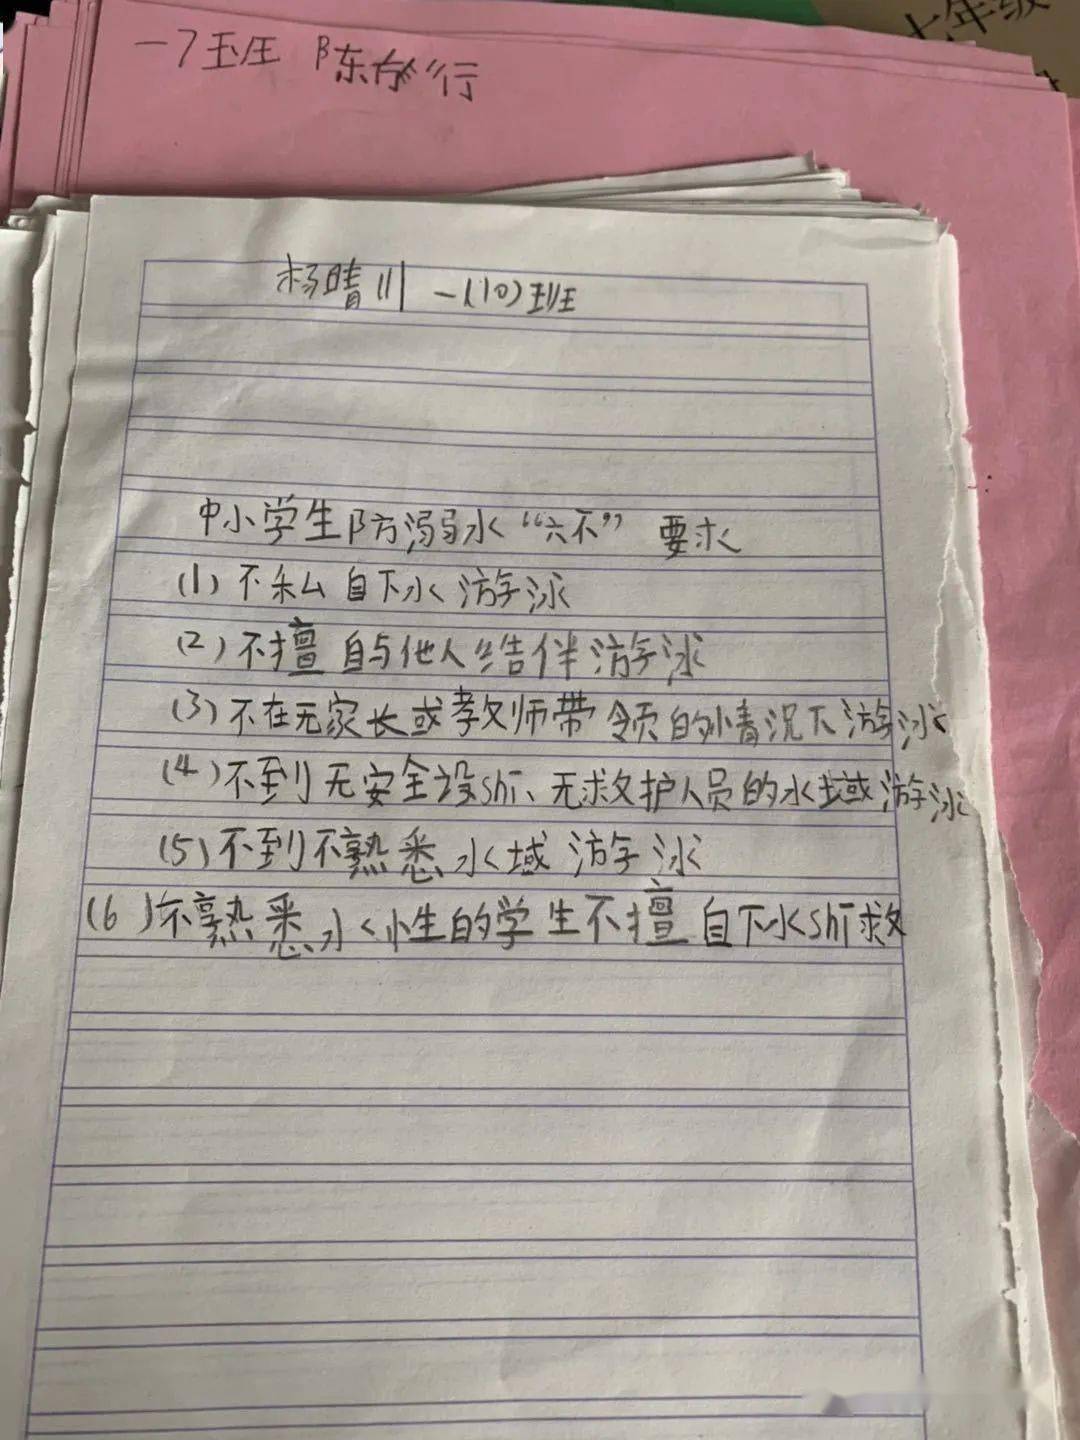 七年级
一7班 陈
行
杨晴川 一(10)班
中小学生防溺水“六不”要求
(1)不私自下水游泳
(2)不擅自与他人结伴游泳
(3)不在无家长或教师带领的情况下游泳
(4)不到无安全设shī、无救护人员的水域游泳
(5)不到不熟悉水域游泳
(6)不熟悉水性的学生不擅自下水shī救